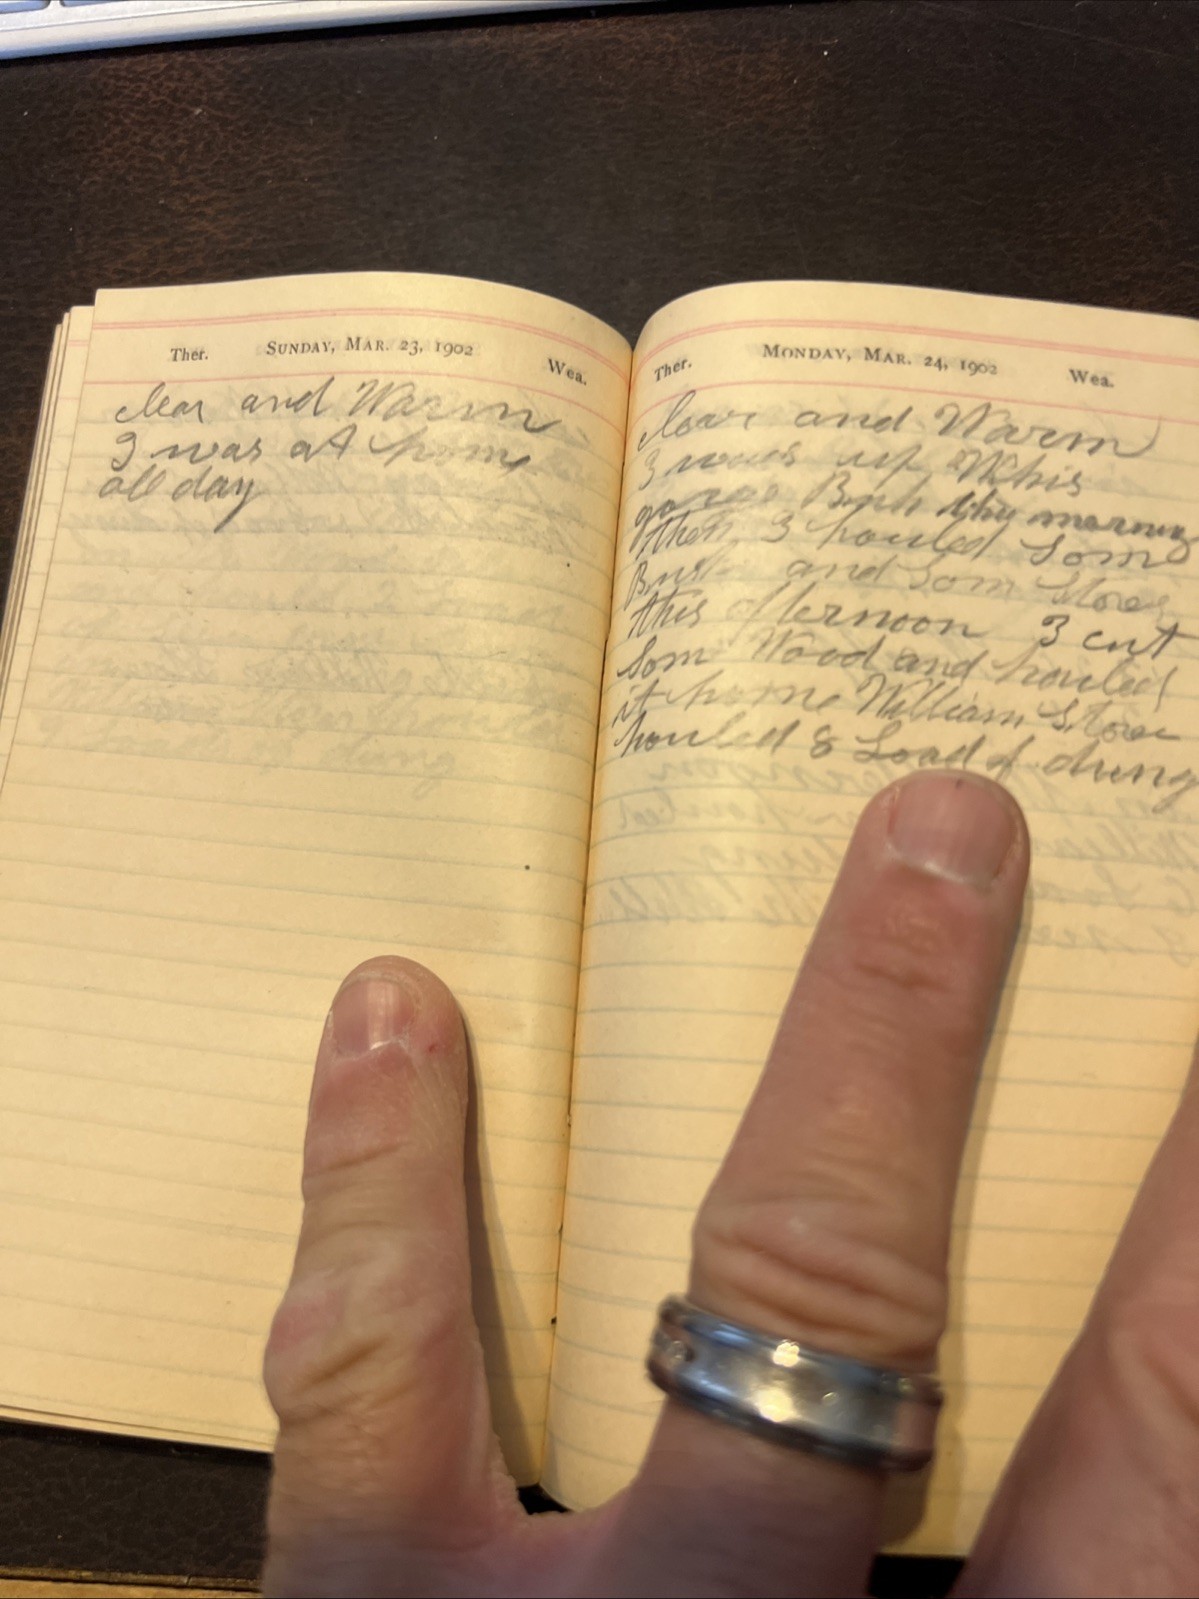 Ther.
SUNDAY, MAR. 23, 1902
Wea.
clear and Warm
I was at home
all day
Ther.
MONDAY, MAR. 24, 1902
Wea.
clear and Warm
I was up
Bush this morning
then I houled Som
Bush and Som Stones
this afternoon I cut
Som Wood and houled
it home William
houled 8 Load of dung